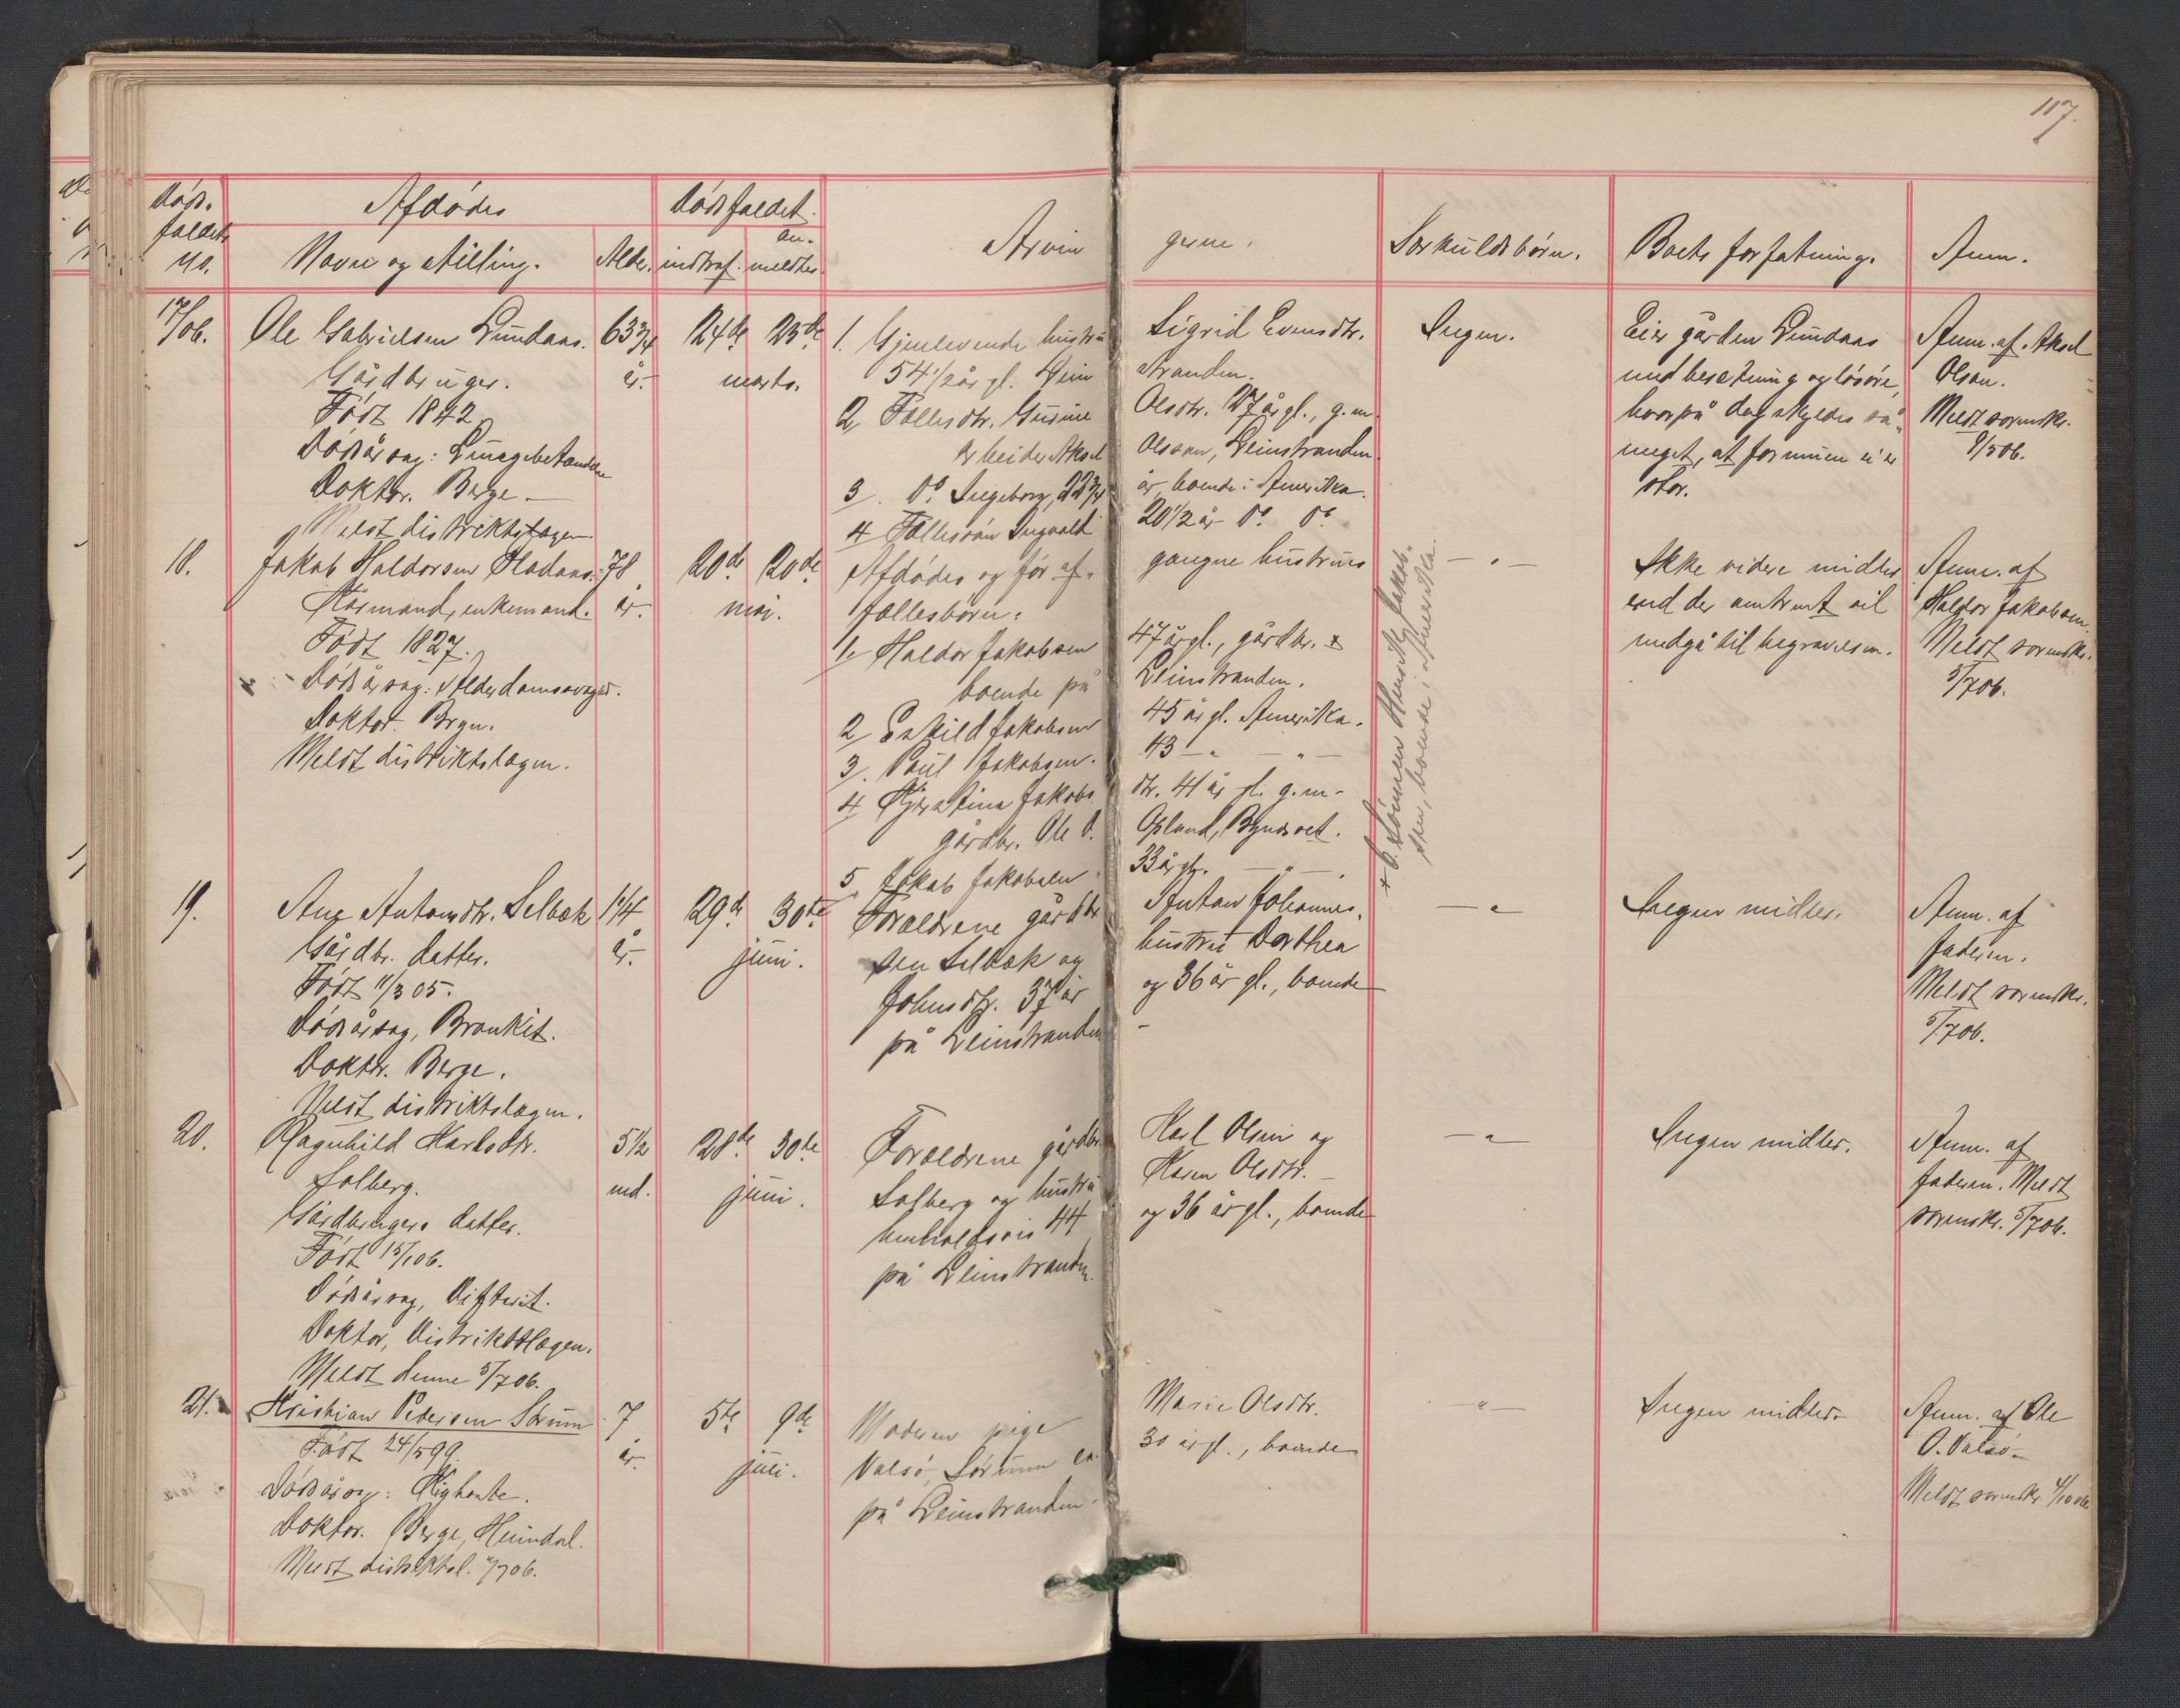 117.
Døds-
faldets
no.
Afdødes
Navn og stilling.
Alder.
Dødsfaldet.
indtraf.
an-
meldtes.
Arvin
gerne.
Særkuldsbørn.
Boets forfatning.
Anm.
17/06.
Ole Gabrielsen Lundaas.
Gårdbruger.
Født 1842
Dødsårsag: Lungebetændelse
Doktor. Berge.—
Meldt distriktslægen.
63 3/4
år.
24de 25de
marts.
1. Gjenlevende hustru
54 1/2 år gl. Lein
2, Fællesdtr. Gurine
arbeider Aksel
3. Do Ingeborg, 22 3/4
4 Fællessøn Ingvald
Sigrid Evensdtr.
stranden.
Olsdtr. 27 år gl., g.m.
Olsen, Leinstranden.
år, boende i Amerika.
20 1/2 år Do Do
Ingen.
Eier gården Lundaas
med besetning og løsøre,
hvorpå dog skyldes så
meget, at formuen ei er
stor.
Anm. af Aksel
Olsen.
Meldt sorenskr.
9/5 06.
18.
Jakob Haldorsen Hladaas.
Kårmand, enkemand.
Født 1827.
Dødsårsag: Alderdomssvaghed.
Doktor. Bryn.
Meldt distriktslægen.
78
år.
20de 20de
mai.
Afdødes og før af-
fællesbørn:
1, Haldor Jakobsen
boende på
2, Eskild Jakobsen
3, Paul Jakobsen.
4 Kjerstina Jakobs
gårdbr. Ole O.
5. Jakob Jakobsen
gangne hustrues
47 år gl., gårdbr. x
Leinstranden.
45 år gl. Amerika.
43 — " — " —
dtr. 41 år gl. g.m.
Opland, Byneset.
33 år gl. — " —
+ 6. Sønnen Henrik Jakob-
sen, boende i Amerika.
— " —
Ikke videre midler
end der omtrent vil
medgå til begravelsen.
Anm. af
Haldor Jakobsen.
Meldt sorenskr.
5/7 06.
19.
Ane Antonsdtr. Selbæk
Gårdbr. datter.
Født 11/3 05.
Dødsårsag, Bronkit.
Doktor. Berge.
Meldt distriktslægen.
1 1/4
år.
29de 30te
juni.
Forældrene gårdbr
sen Selbæk og
Johnsdtr. 37 år
på Leinstranden
Anton Johannes-
hustru Dorthea
og 36 år gl., boende
— " —
Ingen midler.
Anm. af
faderen.
Meldt sorenskr.
5/7 06.
20.
Ragnhild Karlsdtr.
Solberg.
Gårdbrugers datter.
Født 15/1 06.
Dødsårsag, Difterit.
Doktor, Distriktslægen.
Meldt denne 5/7 06.
5 1/2
md.
28de 30te
juni.
Forældrene gårdbr.
Solberg og hustru
henholdsvis 44
på Leinstranden.
Karl Olsen og
Karen Olsdtr.
og 36 år gl., boende
— " —
Ingen midler.
Anm. af
faderen. Meldt
sorenskr. 5/7 06.
21.
Kristian Pedersen Sørum
Født 24/5 99.
Dødsårsag: Kighoste.
Doktor. Berge, Heimdal.
Meldt distriktsl. 9/7 06.
7
år.
5te 9de
juli.
Moderen pige
Valsø, Sørum ca.
på Leinstranden.
Marie Olsdtr.
30 år gl., boende
— " —
Ingen midler.
Anm. af Ole
O. Valsø.
Meldt sorenskr. 4/10 06